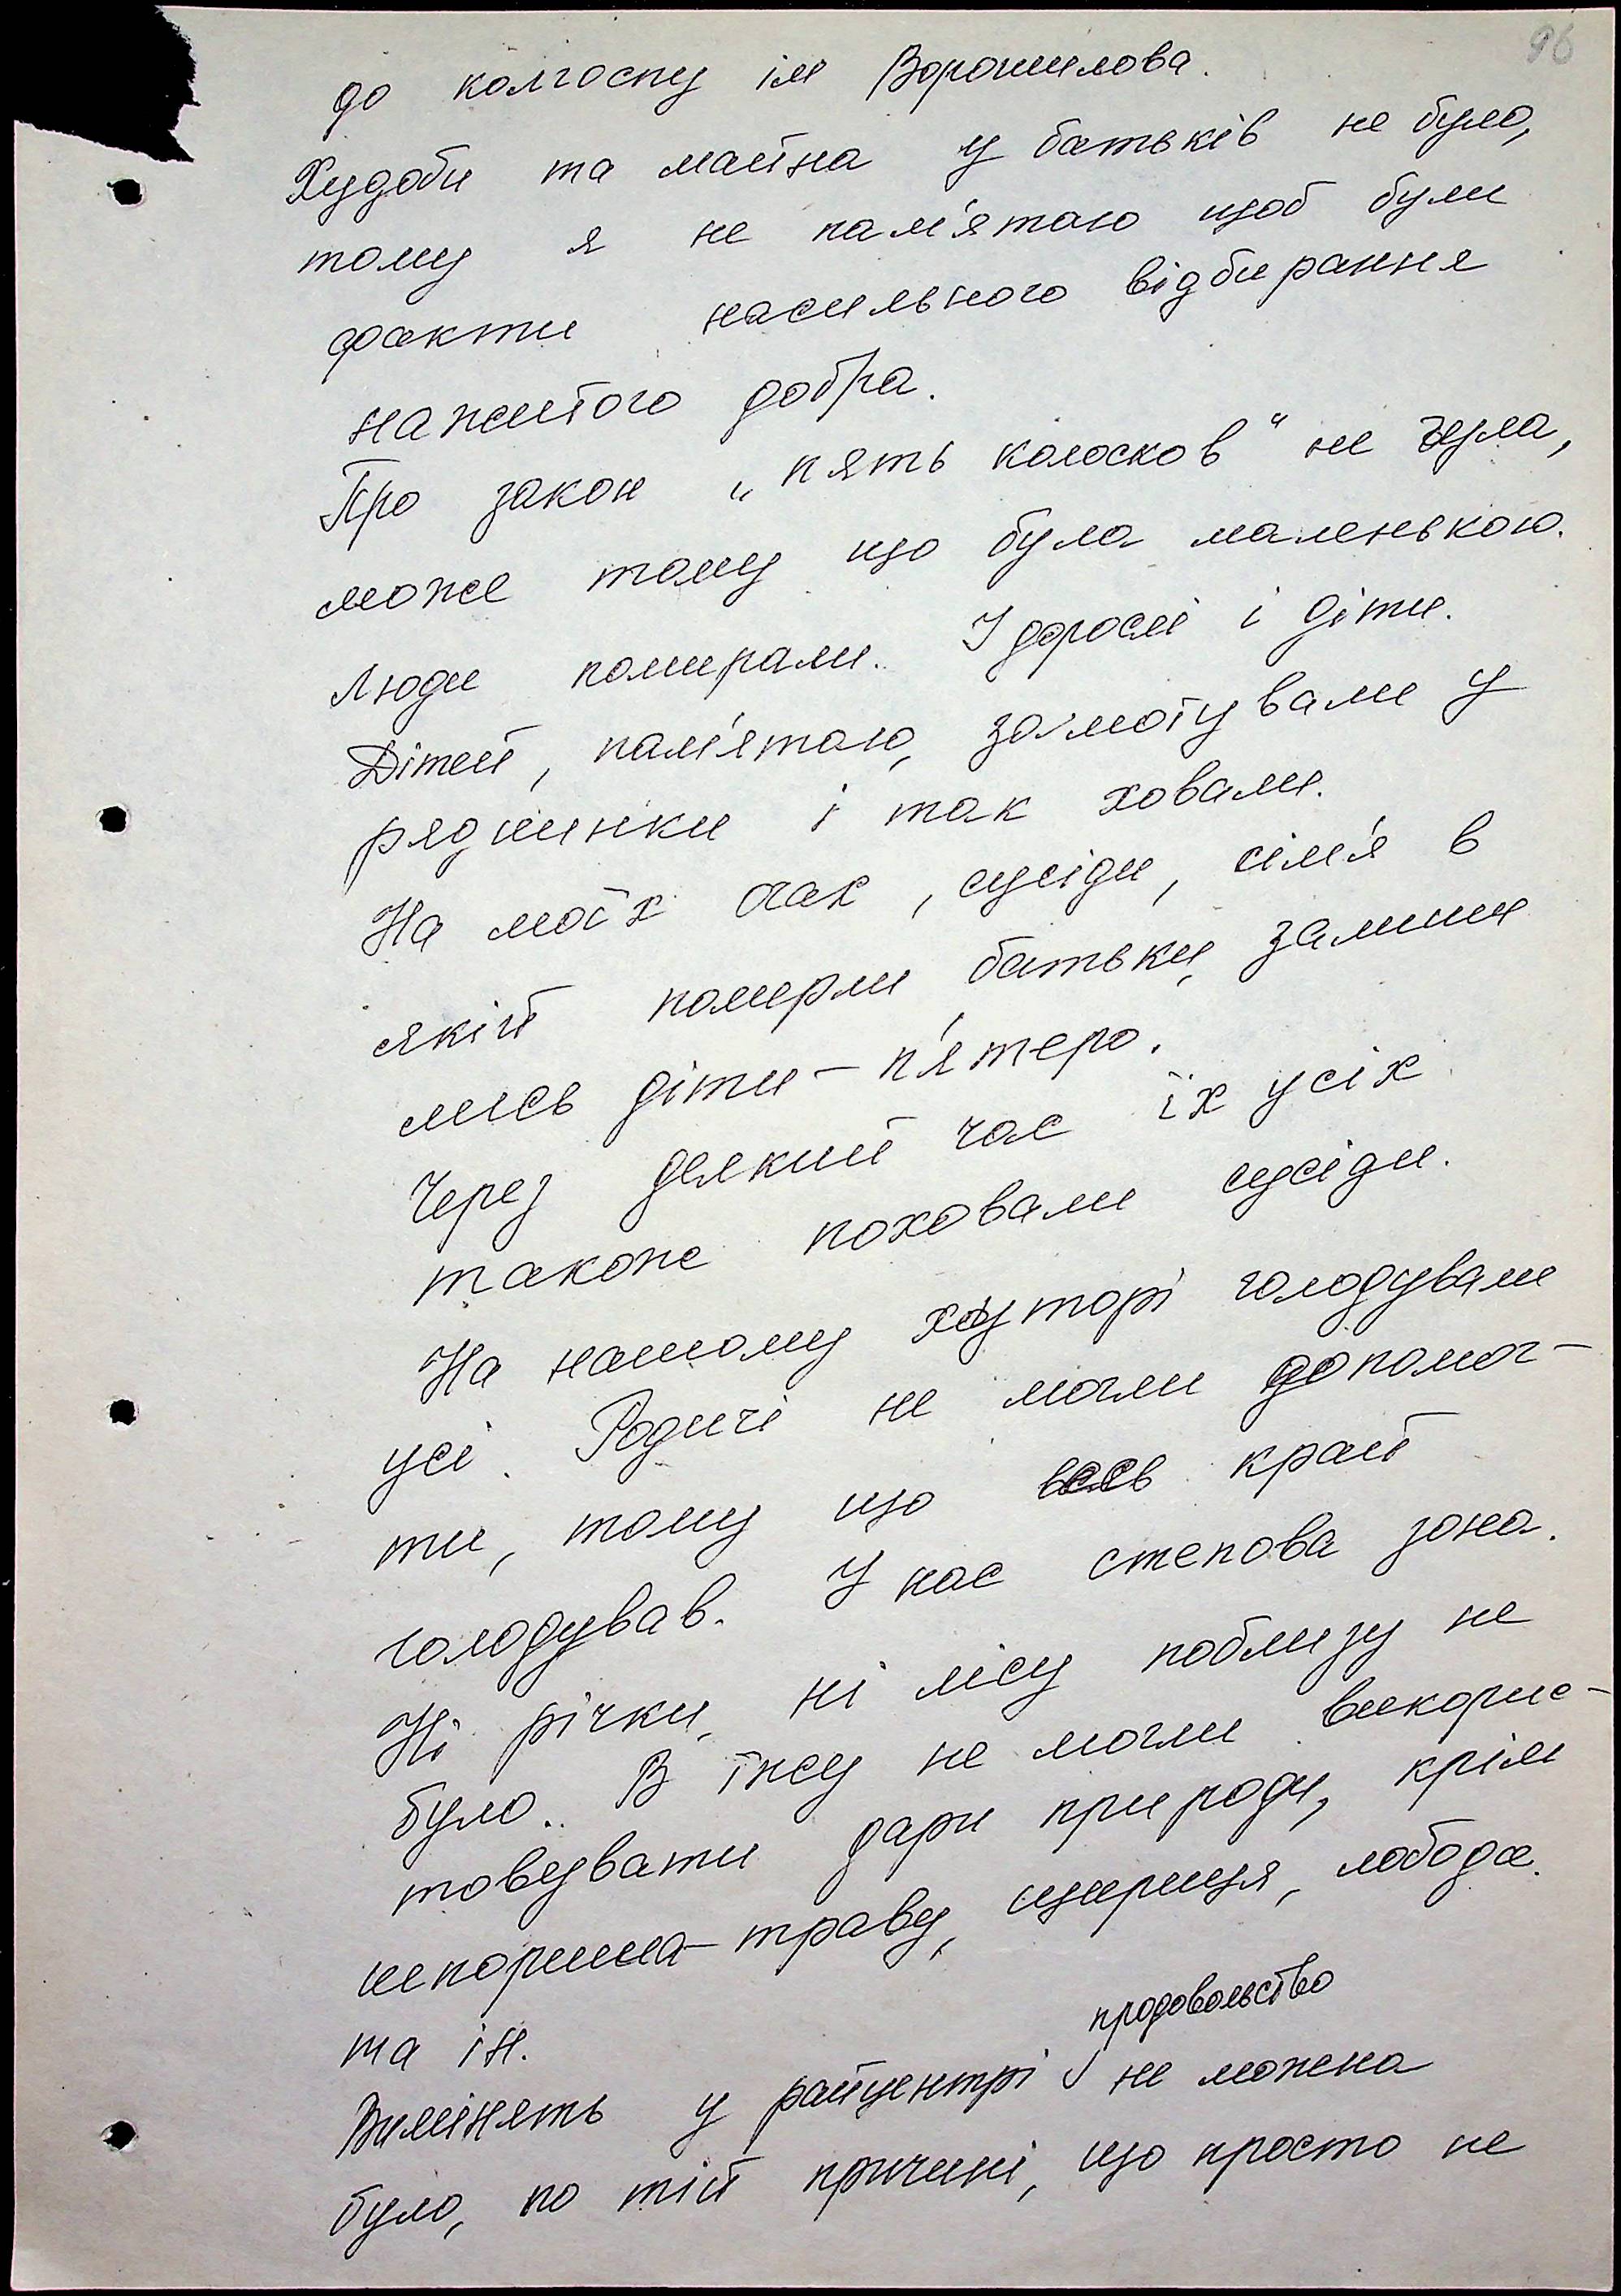 96
до колгоспу ім Ворошилова.
Худоби та майна у батьків не було,
тому я не пам'ятаю щоб були
факти насильного відбирання
нажитого добра.
Про закон „пять колосков“ не чула,
може тому що була маленькою.
Люди помирали. І дорослі і діти.
Дітей, пам'ятаю, замотували у
ряднинки і так ховали.
На моїх очах, сусіди, сім'я в
якій померли батьки, залиши
лись діти - п'ятеро.
Через деякий час їх усіх
також поховали сусіди.
На нашому хуторі голодували
усі. Родичі не могли допомог-
ти, тому що весь край
голодував. У нас степова зона.
Ні річки, ні лісу поблизу не
було. В їжу не могли викорис-
товувати дари природи, крім
шпориша-траву, щириця, лобода.
та ін.
продовольство
Виміняць у райцентрі не можна
було, по тій причині, що просто не